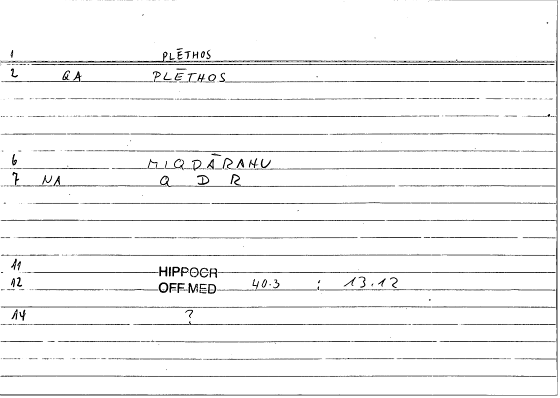 1 PLĒTHOS
2 QA PLĒTHOS
6 MIQDĀRAHU
7 NA Q D R
11 HIPPOCR
12 OFF.MED 40.3 : 13.12
14 ?